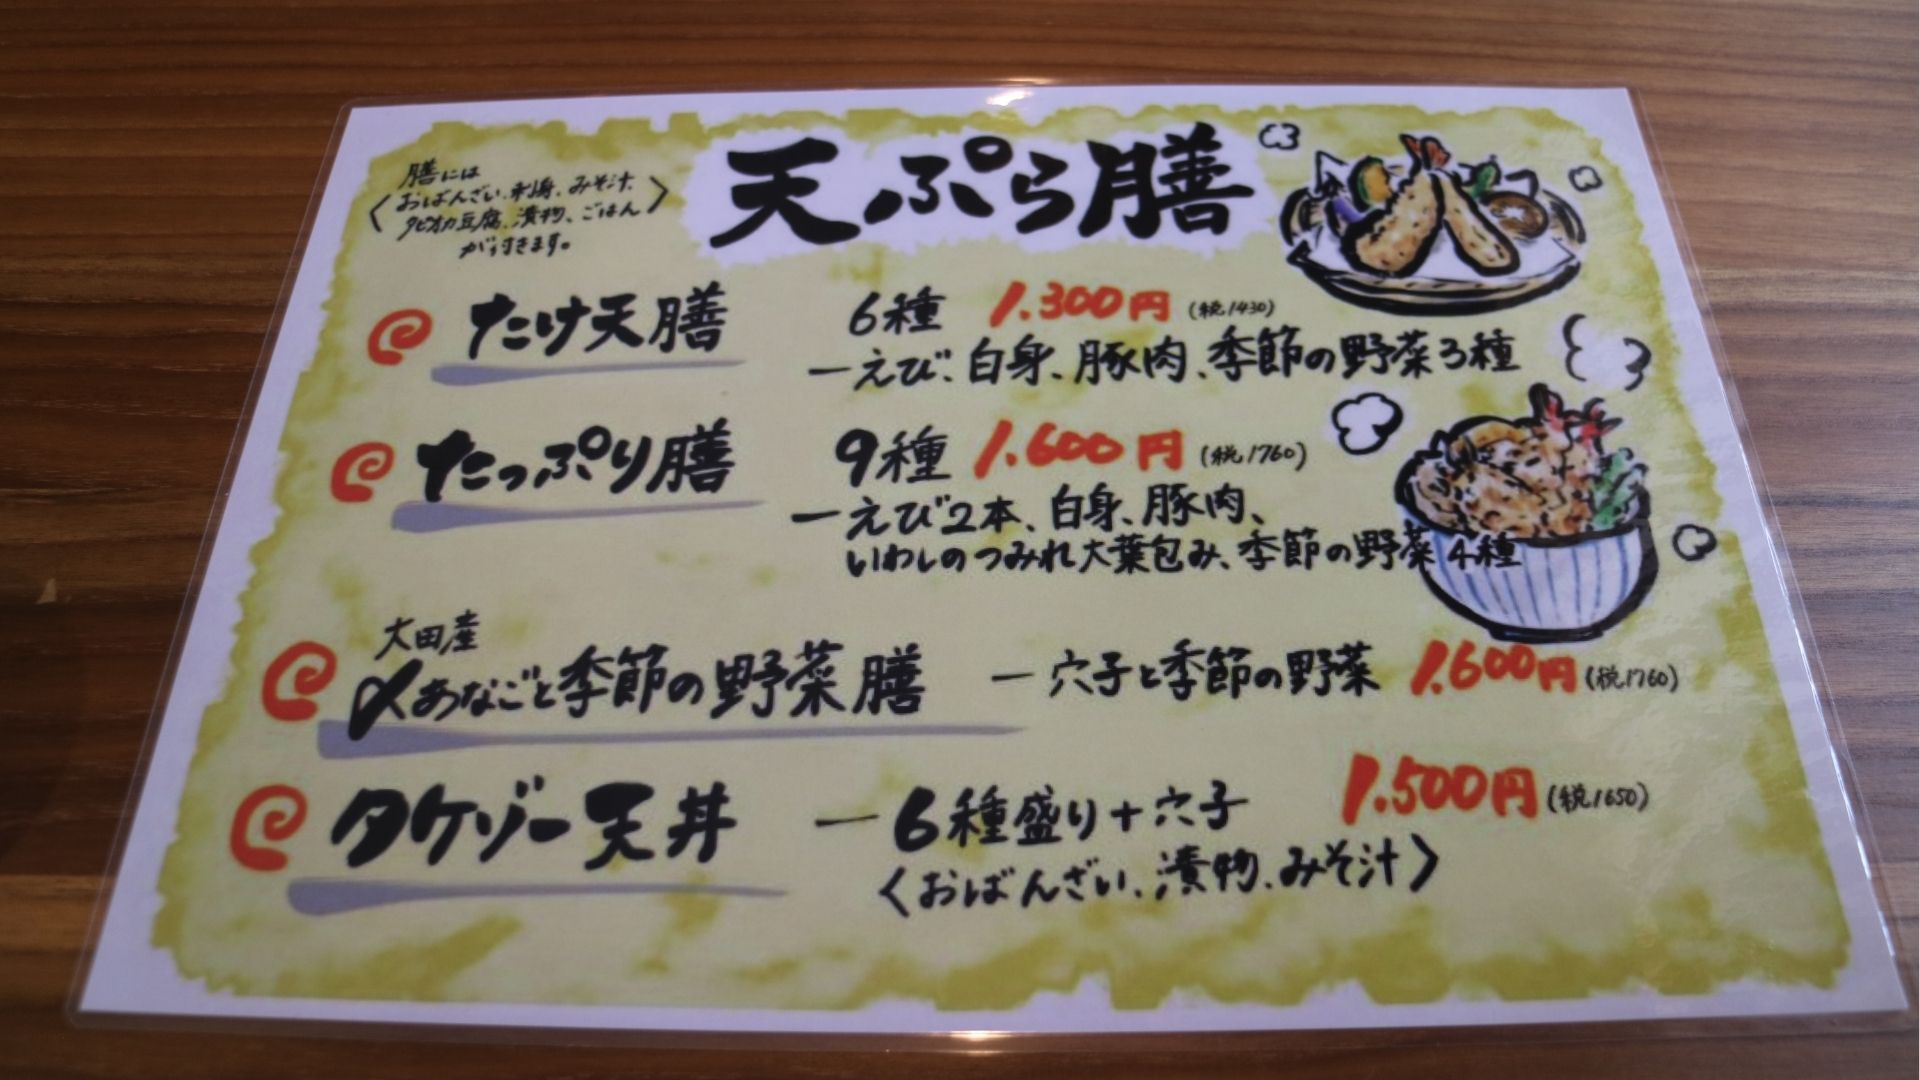 天ぷら膳
膳には
〈おばんざい、刺身、みそ汁、
タピオカ豆腐、漬物、ごはん〉
が付きます。
たけ天膳 6種 1.300円(税1430)
ーえび、白身、豚肉、季節の野菜3種
たっぷり膳 9種 1.600円(税1760)
ーえび2本、白身、豚肉、
いわしのつみれ大葉包み、季節の野菜4種
大田産
〆あなごと季節の野菜膳 ー穴子と季節の野菜 1.600円(税1760)
タケゾー天丼 ー6種盛り+穴子 1.500円(税1650)
〈おばんざい、漬物、みそ汁〉